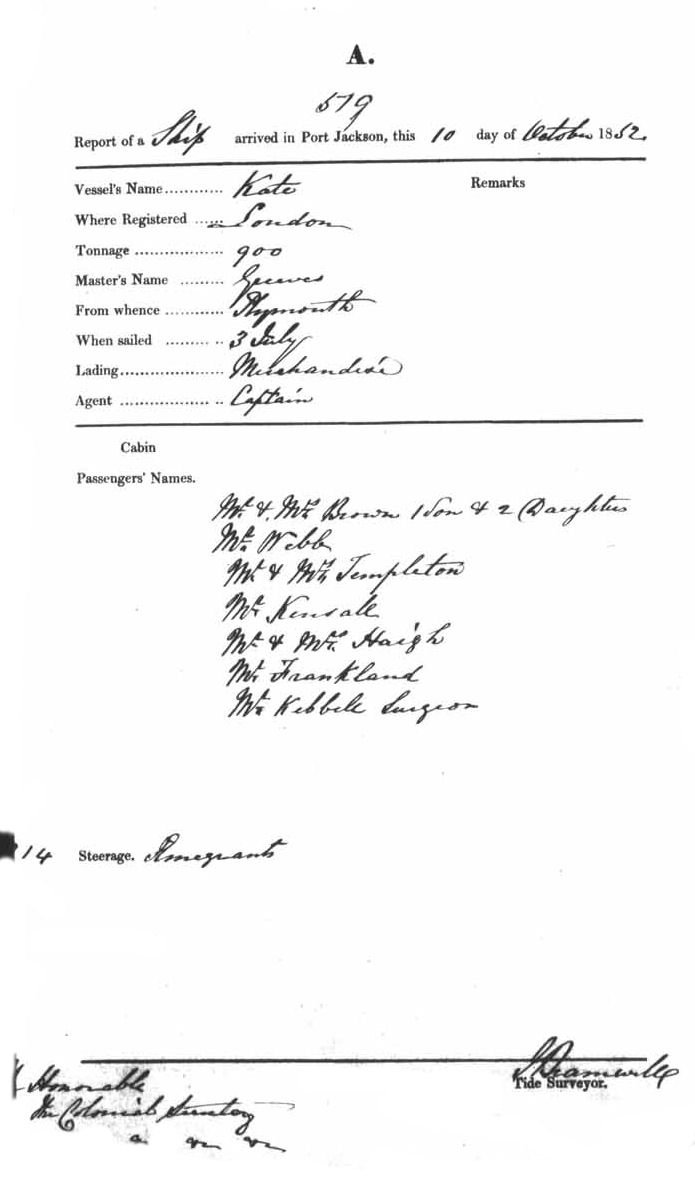 A.
579
Report of a Ship arrived in Port Jackson, this 10 day of October 1852.
Vessel's Name ............ Kate Remarks
Where Registered ...... London
Tonnage .................. 900
Master's Name .........
From whence ............ Plymouth
When sailed ......... .. 3 July
Lading ..................... Merchandise
Agent .................. .. Captain
Cabin
Passengers' Names.
Mr. & Mrs Brown 1 Son & 2 Daughters
Mr. Webb
Mr & Mrs Templeton
Mr Kensall
Mr & Mrs. Haigh
Mr Frankland
Mr Kebbell Surgeon
14 Steerage. Emegrants
Tide Surveyor.
Honorable
The Colonial